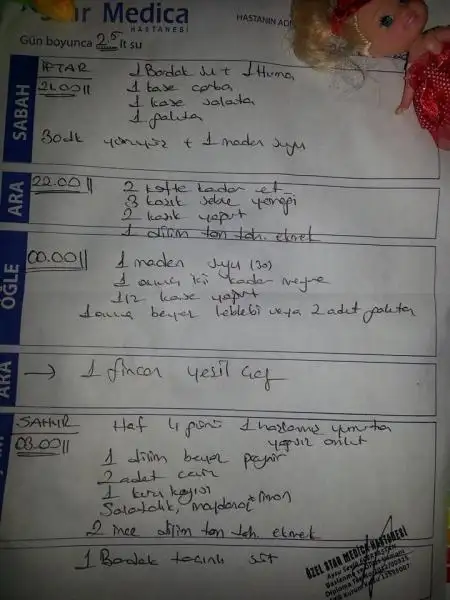 Star Medica
HASTANESİ
HASTANIN ADI
Gün boyunca 2.5 lt su
SABAH
İFTAR
21.00
1 Bardak su + 1 Hurma
1 kase çorba
1 kase salata
1 galeta
30dk yürüyüş + 1 maden suyu
ARA
22.00
2 köfte kadar et
3 kaşık sebze yemeği
2 kaşık yoğurt
1 dilim tam tah. ekmek
ÖĞLE
00.00
1 maden suyu (30)
1 avuç içi kadar meyve
1/2 kase yoğurt
1 avuç beyaz leblebi veya 2 adet galeta
ARA
→ 1 fincan yeşil çay
SAHUR
03.00
Haf 4 günü 1 haşlanmış yumurta
yağsız omlet
1 dilim beyaz peynir
2 adet ceviz
1 kuru kayısı
Salatalık, maydanoz + limon
2 ince dilim tam tah. ekmek
1 Bardak tarçınlı süt
ÖZEL STAR MEDICA HASTANESİ